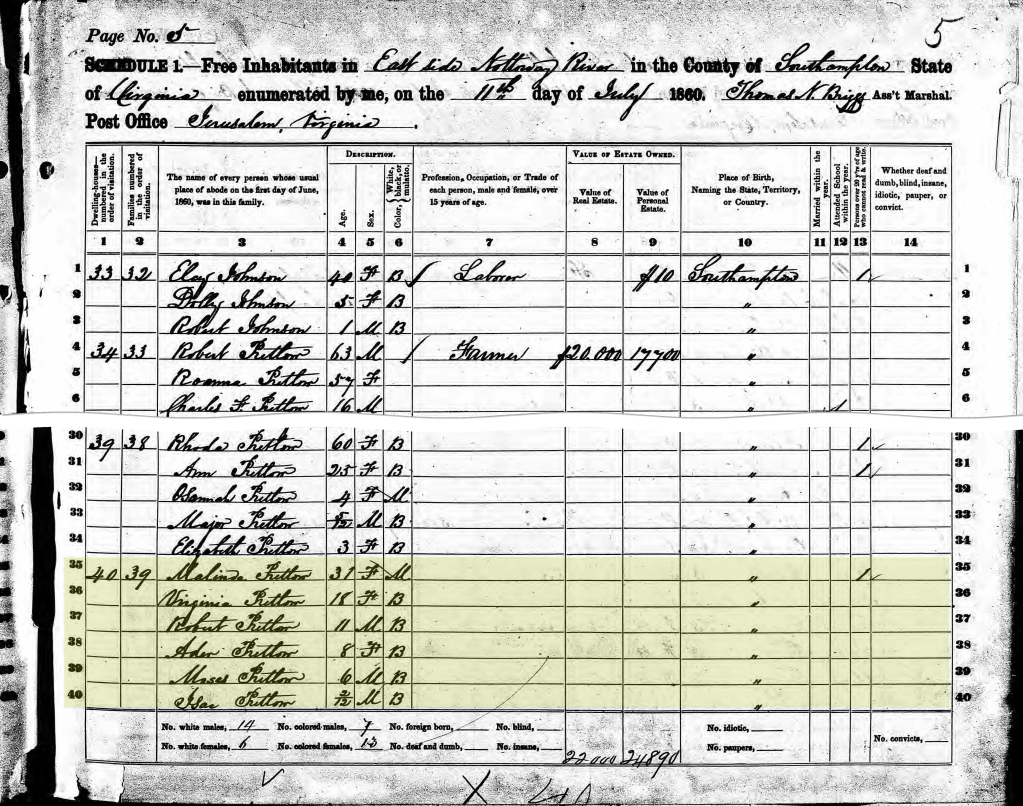 Page No. 5
5
SCHEDULE 1.—Free Inhabitants in East side Nottoway River in the County of Southampton State
of Virginia enumerated by me, on the 11th day of July 1860. Thomas N. Briggs Ass't Marshal.
Post Office Jerusalem, Virginia.
Dwelling-houses—numbered in the order of visitation.
Families numbered in the order of visitation.
The name of every person whose usual place of abode on the first day of June, 1860, was in this family.
DESCRIPTION.
Age.
Sex.
Color, { White, black, or mulatto.
Profession, Occupation, or Trade of each person, male and female, over 15 years of age.
VALUE OF ESTATE OWNED.
Value of Real Estate.
Value of Personal Estate.
Place of Birth, Naming the State, Territory, or Country.
Married within the year.
Attended School within the year.
Persons over 20 y'rs of age who cannot read & write.
Whether deaf and dumb, blind, insane, idiotic, pauper, or convict.
1 2 3 4 5 6 7 8 9 10 11 12 13 14
1 33 32 Johnson 40 F B Laborer $10 Southampton 1 1
2 Dolly Johnson 5 F B " 2
3 Robert Johnson 1 M B " 3
4 34 33 Robert Pretlow 63 M Farmer $20.000 17700 " 4
5 Roanna Pretlow 57 F " 5
6 Charles F. Pretlow 16 M " 1 6
30 39 38 Rhoda Pretlow 60 F B " 1 30
31 Ann Pretlow 25 F B " 1 31
32 Pretlow 4 F M " 32
33 Major Pretlow M B " 33
34 Elizabeth Pretlow 3 F B " 34
35 40 39 Malinda Pretlow 31 F M " 1 35
36 Virginia Pretlow 18 F B " 36
37 Robert Pretlow 11 M B " 37
38 Aden Pretlow 8 F B " 38
39 Moses Pretlow 6 M B " 39
40 Isac Pretlow 2/12 M B " 40
No. white males, 14 No. colored males, 7 No. foreign born, No. blind, No. idiotic,
No. white females, 6 No. colored females, 13 No. deaf and dumb, No. insane, 22000 24890 No. paupers, No. convicts,